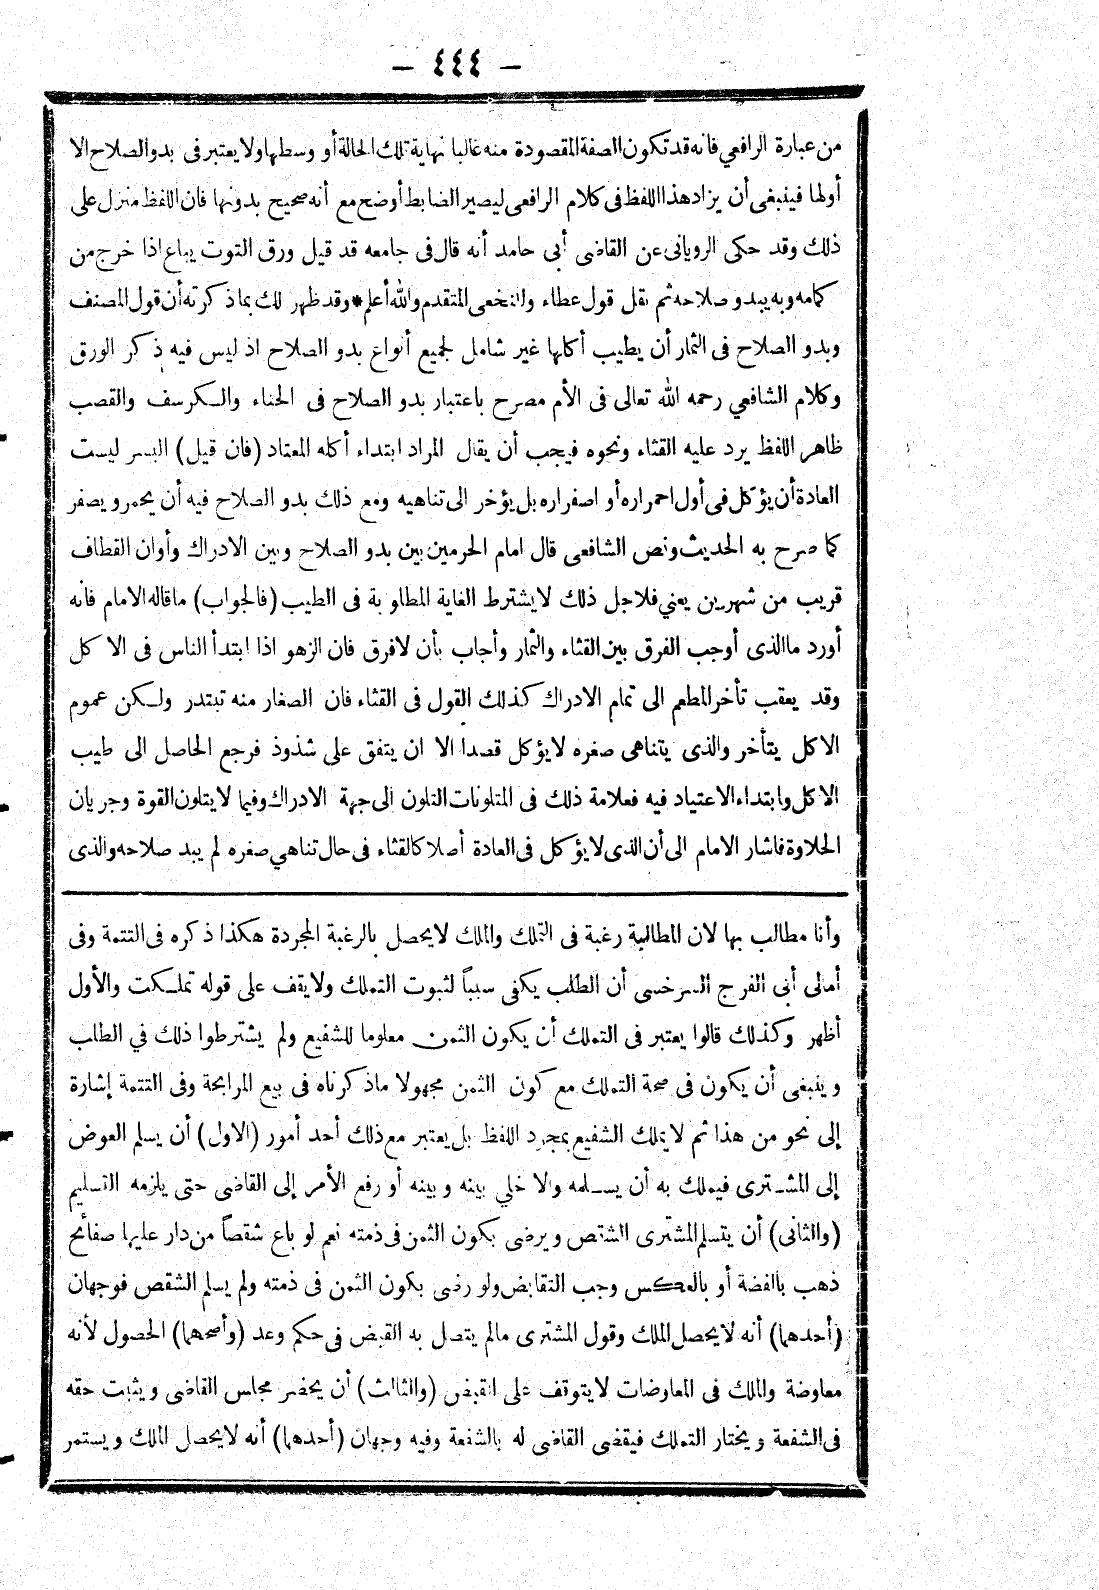 — ٤٤٤ —
من عبارة الرافعي فانه قد تكون الصفة المقصودة منه غالبا نهاية تلك الحالة أو وسطها ولا يعتبر فى بدو الصلاح الا
أولها فينبغى أن يزاد هذا اللفظ فى كلام الرافعى ليصير الضابط أوضح مع أنه صحيح بدونها فان اللفظ منزل على
ذلك وقد حكى الرويانى عن القاضى أبى حامد أنه قال فى جامعه قد قيل ورق التوت يباع اذا خرج من
كمامه وبه يبدو صلاحه ثم نقل قول عطاء والنخعى المتقدم والله أعلم * وقد ظهر لك بما ذكرته أن قول المصنف
وبدو الصلاح فى الثمار أن يطيب أكلها غير شامل لجميع أنواع بدو الصلاح اذ ليس فيه ذكر الورق
وكلام الشافعي رحمه الله تعالى فى الأم مصرح باعتبار بدو الصلاح فى الحناء والكرسف والقصب
ظاهر اللفظ يرد عليه القثاء ونحوه فيجب أن يقال المراد ابتداء أكله المعتاد (فان قيل) البسر ليست
العادة أن يؤكل فى أول احمراره أو اصفراره بل يؤخر الى تناهيه ومع ذلك بدو الصلاح فيه أن يحمر ويصفر
كما صرح به الحديث ونص الشافعى قال امام الحرمين بين بدو الصلاح وبين الادراك وأوان القطاف
قريب من شهرين يعني فلاجل ذلك لا يشترط الغاية المطلوبة فى الطيب (فالجواب) ما قاله الامام فانه
أورد ما الذى أوجب الفرق بين القثاء والثمار وأجاب بأن لا فرق فان الزهو اذا ابتدأ الناس فى الاكل
وقد يعقب تأخر المطعم الى تمام الادراك كذلك القول فى القثاء فان الصغار منه تبتدر ولكن عموم
الاكل يتأخر والذى يتناهى صغره لا يؤكل قصدا الا ان يتفق على شذوذ فرجع الحاصل الى طيب
الاكل وابتداء الاعتياد فيه فعلامة ذلك فى المتلونات التلون الى جهة الادراك وفيما لا يتلون القوة وجريان
الحلاوة فاشار الامام الى أن الذى لا يؤكل فى العادة أصلا كالقثاء فى حال تناهي صغره لم يبد صلاحه والذى
وأنا مطالب بها لان المطالبة رغبة فى التملك والملك لا يحصل بالرغبة المجردة هكذا ذكره فى التتمة وفى
أمالى أبى الفرج السرخسى أن الطلب يكفى سبباً لثبوت التملك ولا يقف على قوله تملكت والأول
أظهر وكذلك قالوا يعتبر فى التملك أن يكون الثمن معلوما للشفيع ولم يشترطوا ذلك في الطلب
وينبغى أن يكون فى صحة التملك مع كون الثمن مجهولا ما ذكرناه فى بيع المرابحة وفى التتمة إشارة
إلى نحو من هذا ثم لا يملك الشفيع بمجرد اللفظ بل يعتبر مع ذلك أحد أمور (الاول) أن يسلم العوض
إلى المشترى فيملك به أن يسلمه والا خلي بينه وبينه أو رفع الأمر إلى القاضى حتى يلزمه التسليم
(والثانى) أن يتسلم المشترى الشقص ويرضى بكون الثمن فى ذمته نعم لو باع شقصاً من دار عليها صفائح
ذهب بالفضة أو بالعكس وجب التقابض ولو رضى بكون الثمن فى ذمته ولم يسلم الشقص فوجهان
(أحدهما) أنه لا يحصل الملك وقول المشترى ما لم يتصل به القبض فى حكم وعد (وأصحهما) الحصول لأنه
معاوضة والملك فى المعاوضات لا يتوقف على القبض (والثالث) أن يحضر مجلس القاضى ويثبت حقه
فى الشفعة ويختار التملك فيقضى القاضى له بالشفعة وفيه وجهان (أحدهما) أنه لا يحصل الملك ويستمر